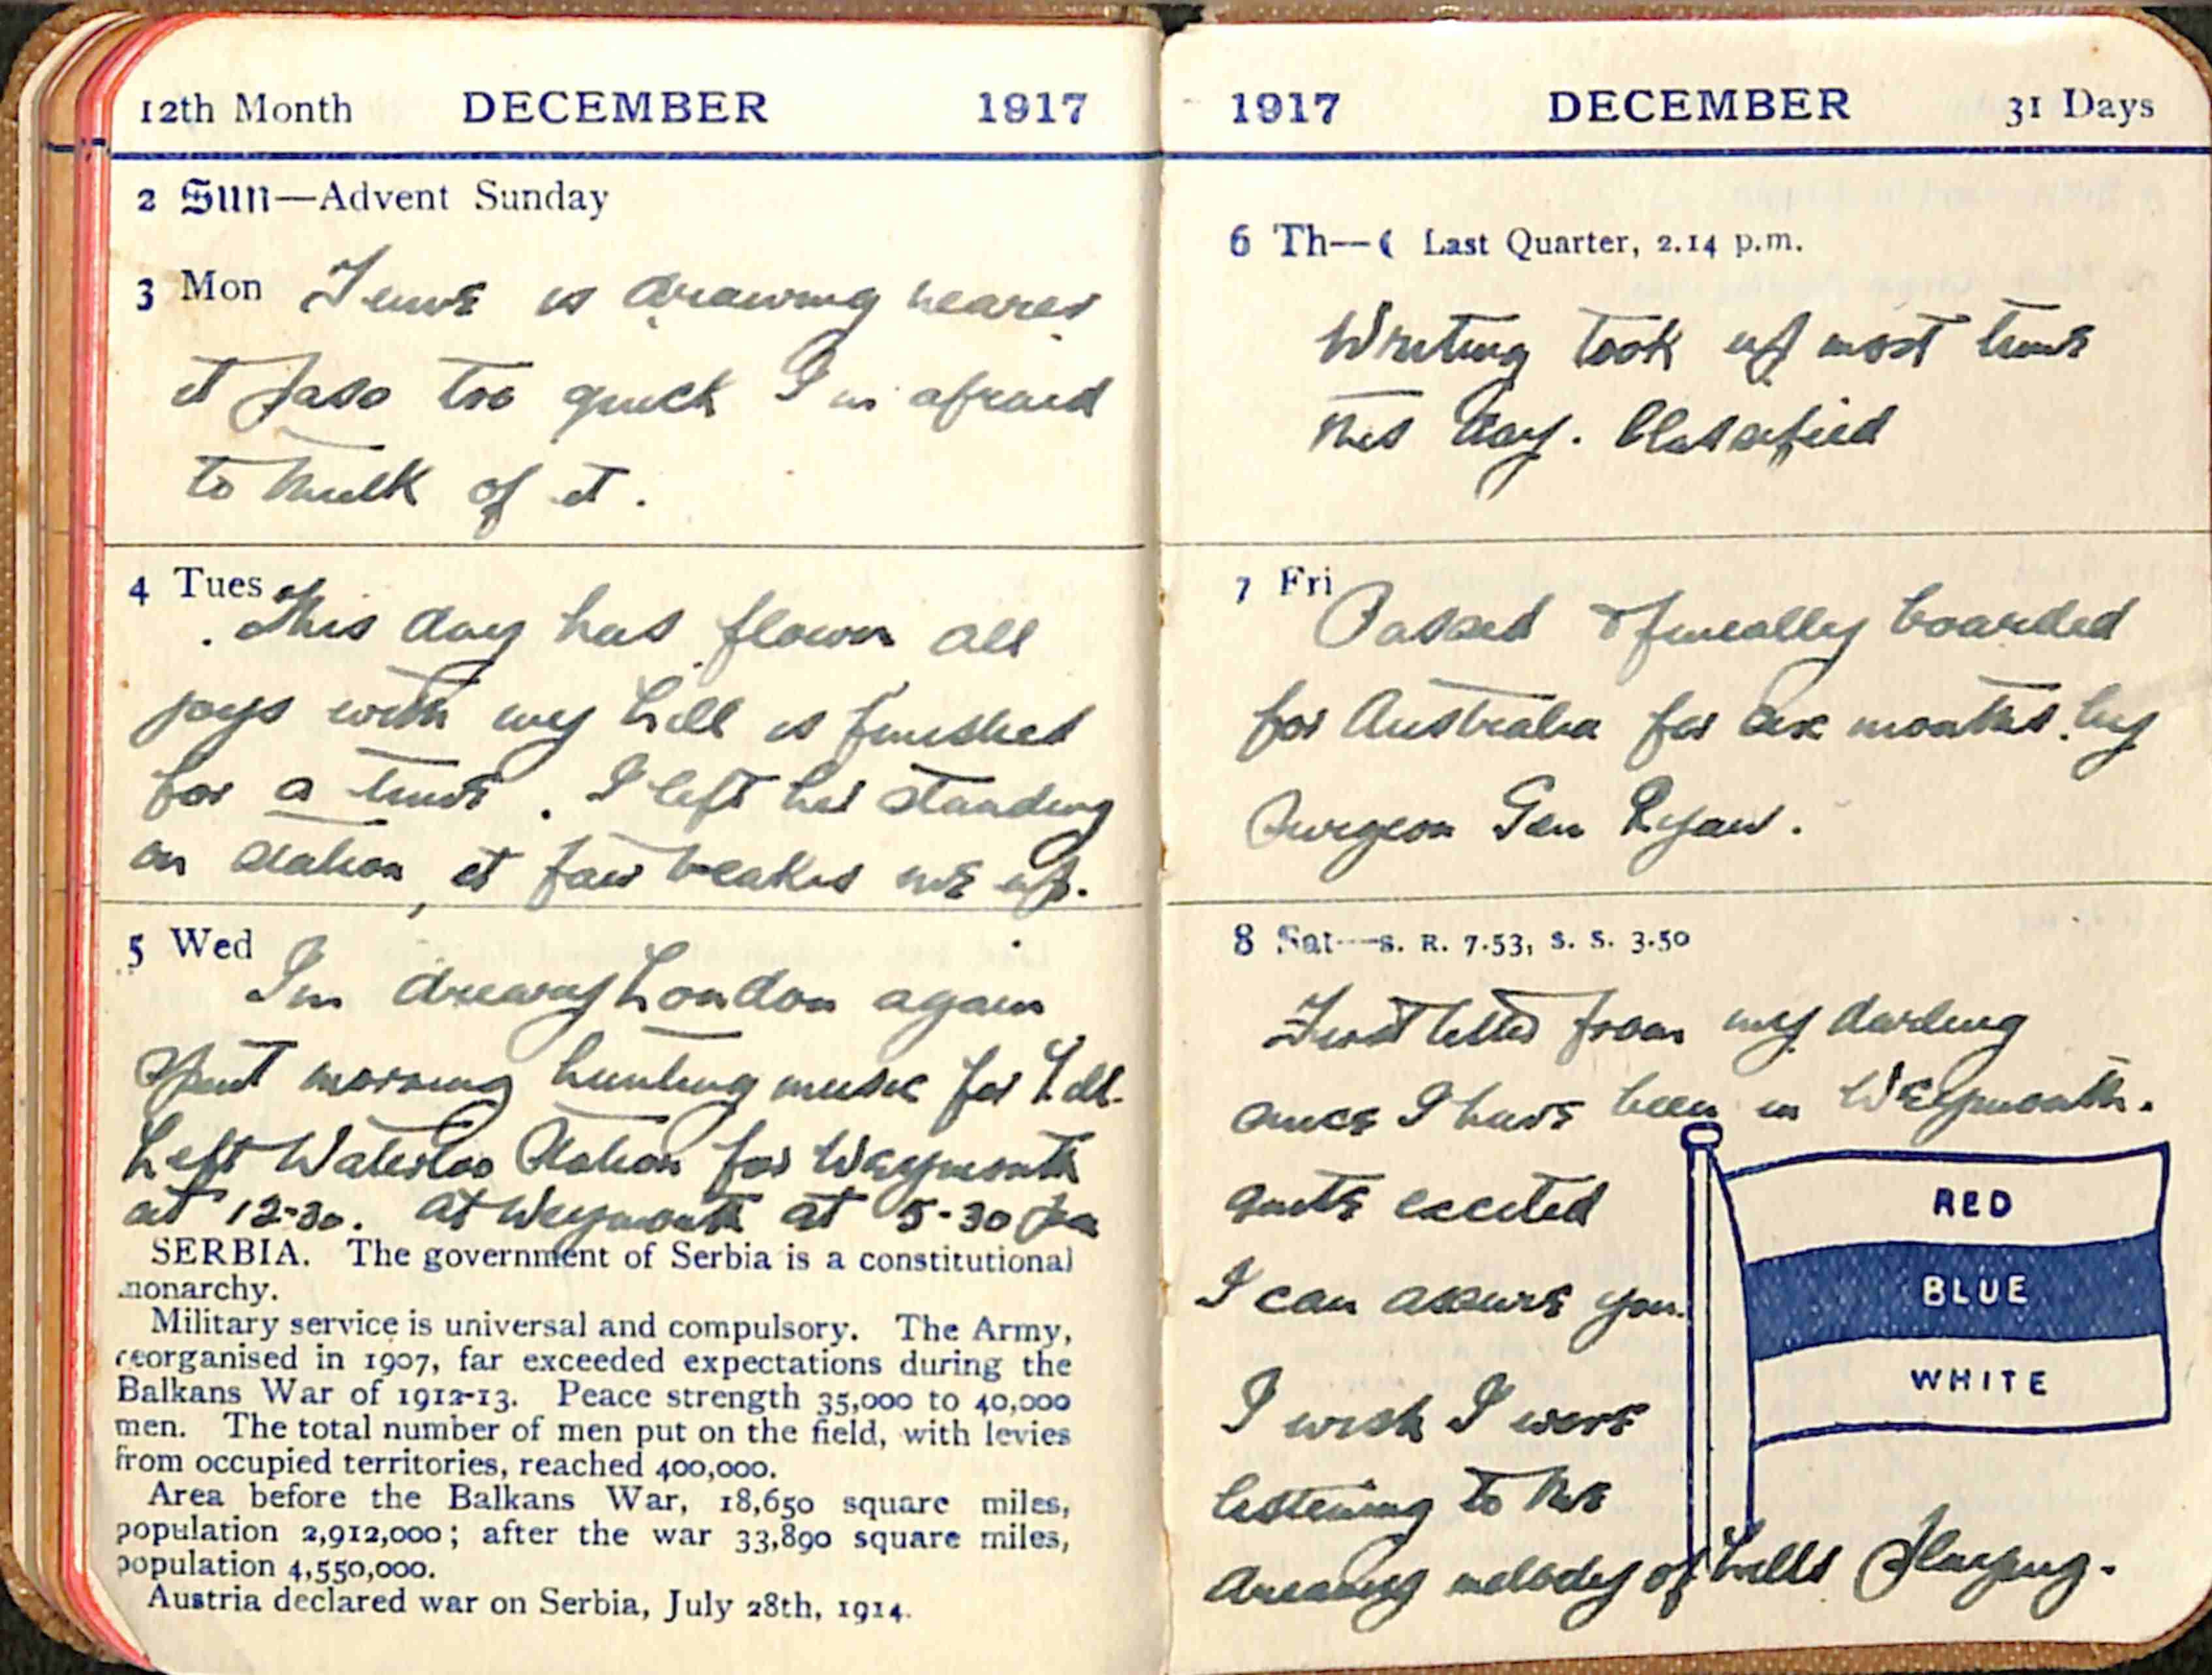 12th Month DECEMBER 1917
2 Sun—Advent Sunday
3 Mon Time is drawing nearer
it pass too quick I'm afraid
to think of it.
4 Tues
This day has flown all
joys with my Lill is finished
for a time. I left her standing
on station, it fair breakes me up.
5 Wed
In dreary London again
Spent morning hunting music for Lill.
Left Waterloo Station for Weymouth
at 12-30. At Weymouth at 5-30 pm
SERBIA. The government of Serbia is a constitutional
monarchy.
Military service is universal and compulsory. The Army,
reorganised in 1907, far exceeded expectations during the
Balkans War of 1912-13. Peace strength 35,000 to 40,000
men. The total number of men put on the field, with levies
from occupied territories, reached 400,000.
Area before the Balkans War, 18,650 square miles,
population 2,912,000; after the war 33,890 square miles,
population 4,550,000.
Austria declared war on Serbia, July 28th, 1914.
1917 DECEMBER 31 Days
6 Th—☾ Last Quarter, 2.14 p.m.
Writing took up most time
this day. Classified
7 Fri
Passed & finally boarded
for Australia for six months by
Surgeon Gen Ryan.
8 Sat—S. R. 7.53, S. S. 3.50
First letter from my darling
since I have been in Weymouth.
quite excited
I can assure you.
I wish I were
listening to the
dreamy melody of Lills playing.
RED
BLUE
WHITE